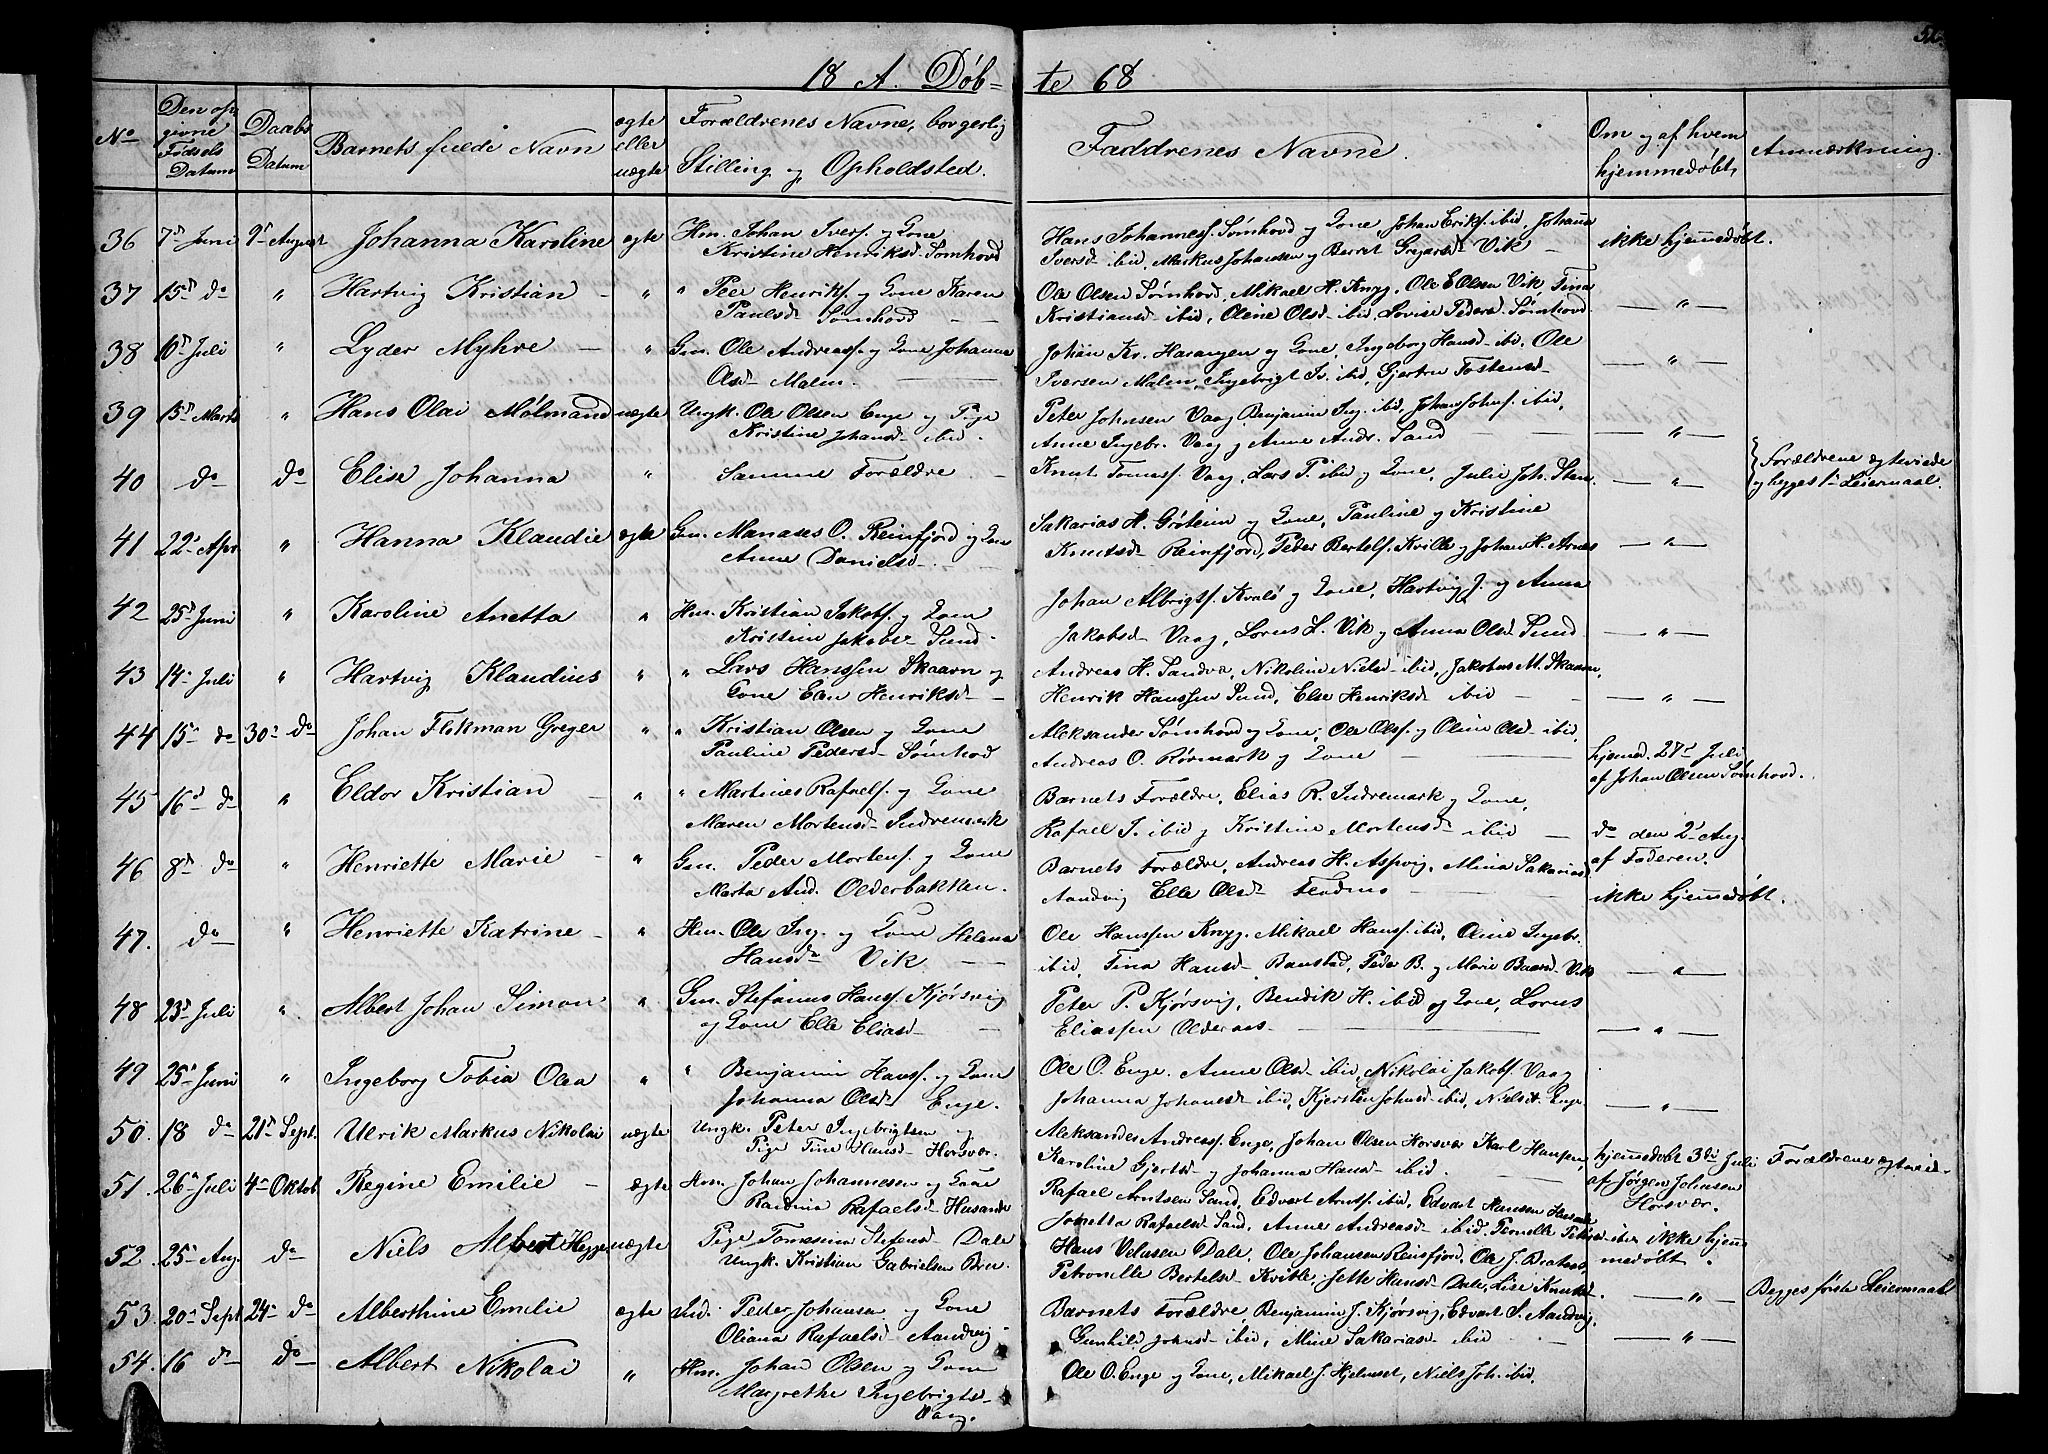 18 A. Døb-
te 68
50.
No
Den op-
givne
Fødsels
Datum
Daabs
Datum
Barnets fulde Navn
ægte
eller
uægte
Forældrenes Navne, borgerlig
Stilling og Opholdsted.
Faddrenes Navne.
Om og af hvem
hjemmedøbt,
Anmærkning.
36 7d Juni 9d August Johanna Karoline ægte Hm. Johan Ivers. og Kone
Kristine Henriksd Sømhovd
Hans Johannesf. Sømhovd og Kone, Johan Eriks. ibid, Johanna
Iversd ibid, Markus Johansen og Beret Gregersd Vik —
ikke hjemmedøbt.
37 15d do " Hartvig Kristian — " " Peer Henriks. og Kone Karen
Paulsd Sømhovd —
Ole Olsen Sømhovd, Mikael H. Knyg, Ole E Olsen Vik Tina
Kristiansd ibid, Olene Olsd ibid, Lovise Pedersd Sømhovd
— " —
38 10d Juli " Lyder Myhre — " Gm. Ole Andreass. og Kone Johanna
Olsd Malm. —
Johan Kr. Harangen og Kone, Ingeborg Hansd ibid, Ole
Iversen Malm, Ingebrigt Iv. ibid, Gjertru Tostensd
— " —
39 15d Marts " Hans Olai Mølmand uægte Ungk. Ole Olsen Enge og Pige
Kristine Johansd ibid.
Peter Johnsen Vaag, Benjamin Ing. ibid, Johan Johns. ibid,
Anne Ingebr. Vaag og Anne Andr. Sand —
— " —
40 do do Elise Johanna " Samme Forældre —
Knut Tomass. Vaag, Lars P. ibid og Kone, Julie Joh. Sten
— " —
Forældrene ægteviede
og begges 1ste Leiermaal.
41 22d Apr. " Hanna Klaudie ægte Gm. Manases O. Reinfjord og Kone
Anne Danielsd —
Sakarias H. Grøteim og Kone, Pauline og Kristine
Knutsd Reinfjord, Peder Bertels. Kvitle og Johan H. Arnes
— " —
42 25d Juni " Karoline Anetta " Hm. Kristian Jakobs. og Kone
Kristine Jakobsd Sund.
Johan Albrigts. Kvalø og Kone, Hartvig J. og Anna
Jakobsd Vaag, Lorns L. Vik og Anna Olsd Sund.
— " —
43 14d Juli " Hartvig Klaudius " " Lars Hanssen Skaarn og
Kone Ean Henriksd —
Andreas H. Sandvæ, Nikoline Nielsd ibid, Jakobus M. Skaarn,
Henrik Hanssen Sund, Else Henriksd ibid —
— " —
44 15d do 30d do Johan Flekman Greger " " Kristian Olsen og Kone
Pauline Pedersd Sømhovd
Aleksander Sømhovd og Kone, Ole Ols. og Oline Olsd ibid,
Andreas O. Rørmark og Kone —
hjemd. 27d Juli
af Johan Olsen Sømhovd.
45 16d do " Eldor Kristian — " " Martines Rafaels. og Kone
Maren Mortensd Indremark
Barnets Forældre, Elias R. Indremark og Kone,
Rafael I. ibid og Kristine Mortensd ibid —
do den 2d Aug.
af Faderen.
46 8d do " Henriette Marie — " Gm. Peder Mortens. og Kone
Marta And. Olderbakken.
Barnets Forældre, Andreas H. Aspvig, Mina Sakariasd
Aandvig Elle Olsd Flodmo —
ikke hjemmedøbt.
47. do " Henriette Katrine — " Hm. Ole Ing. og Kone Helena
Hansd Vik —
Ole Hanssen Knyg, Mikael Hans. ibid, Oline Ingebr.
ibid, Tina Hansd Banstad, Peder B. og Marie Baarsd Vik
— " —
48 23d Juli " Albert Johan Simon " Gm. Stefanus Hans. Kjørsvig
og Kone Elle Eliasd —
Peter P. Kjørsvig, Bendik H. ibid og Kone, Lorns
Eliassen Oldernes —
— " —
49 25d Juni " Ingeborg Tobia Olea " " Benjamin Hans. og Kone
Johanna Olsd Enge.
Ole O. Enge. Anne Olsd ibid, Nikolai Jakobs. Vaag
Johanna Johansd ibid, Kjersten Johnsd ibid, Niels A. Enge
— " —
50. 18 do 21d Sept. Ulrik Markus Nikolai uægte Ungk. Peter Ingebrigtsen og
Pige Tine Hansd Horsvær.
Aleksander Andreass. Enge, Johan Olsen Horsvær Karl Hansen,
Karoline Gjertsd og Johanna Hansd ibid. —
hjemmedøbt 3die Juli
af Jørgen Johnsen
Horsvær.
Forældrene ægtevied—
51. 26d Juli 4d Oktob. Regine Emilie — ægte Hm. Johan Johannesen og Kone
Rardina Rafaelsd Husande
Rafael Arntsen Sand, Edvart Arnts. ibid, Edvart Hansen Husande
Jonetta Rafaelsd Sand, Anne Andreasd ibid, Pernelle Peter ibid
ikke hjem
medøbt.
52. 25d Aug. do Niels Albert Hegge uægte Pige Tomasine Stefensd Dale
Ungk. Kristian Gabrielsen Bru.
Hans Velusen Dale, Ole Johansen Reinsfjord, Ole J. Bratens,
Petronelle Bertelsd Kvitle, Jette Hansd Dale, Lise Knutsd
— " —
Begges første Leiermaal
53. 20d Sept 24d do Alberthine Emilie ægte Ind. Peter Johansen og Kone
Oliana Rafaelsd Aandvig
Barnets Forældre, Benjamin J. Kjørsvig, Edvart S. Aandvig,
Gunhild Johnsd ibid, Mine Sakariasd ibid
— " —
54. 16 do do Albert Nikolai " Hm. Johan Olsen og Kone
Margrethe Ingebrigts-
Vaag.
Ole O. Enge og Kone, Mikael J. Hjelmset, Niels Joh. ibid.